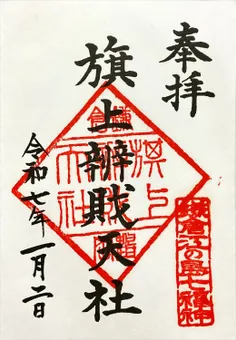 奉拝
旗上辨戝天社
令和七年一月二日
鎌倉江の島七福神